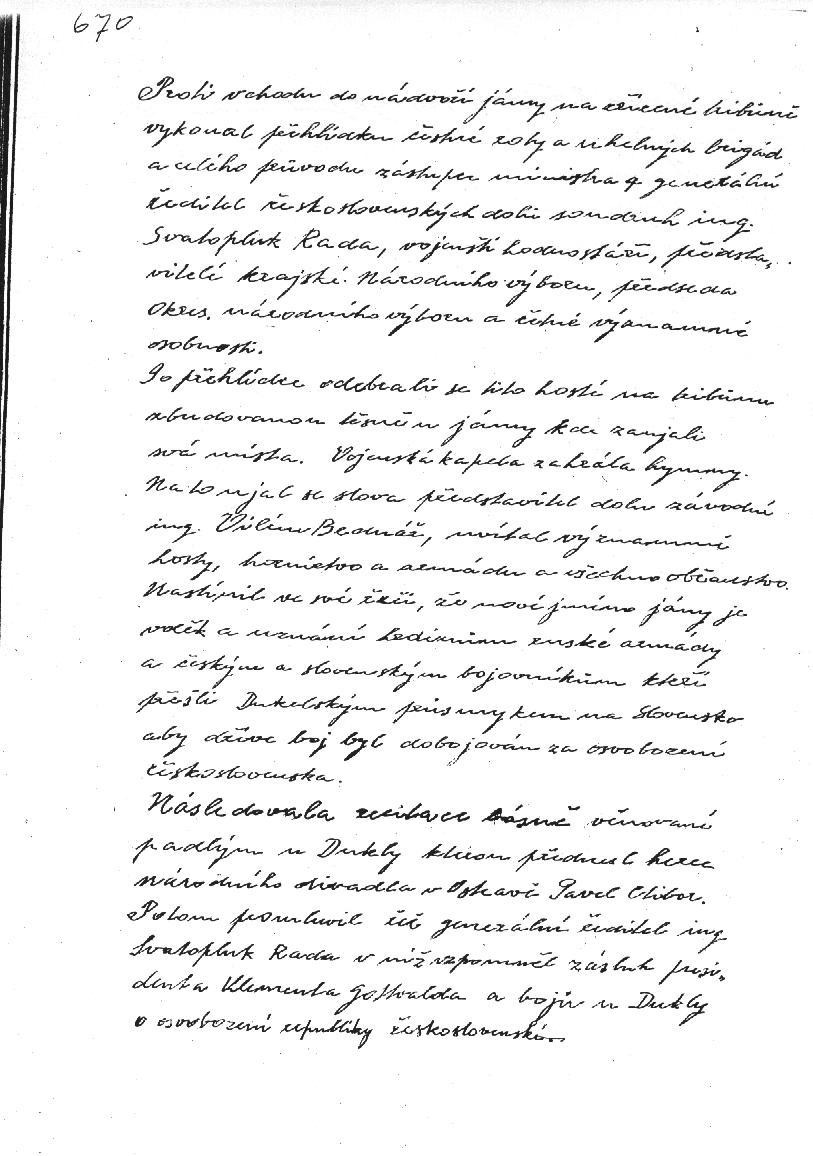 670
Proti vchodu do nádvoří jámy na cvičené tribuně
vykonal přehlídku čestné roty a uhelných brigád
a celého průvodu zástupce ministra a generální
ředitel československých dolů soudruh ing.
Svatopluk Rada, vojenští hodnostáři, předsta„
vitelé krajské. Národního výboru, předseda
Okres. národního výboru a četné významné
osobnosti.
Po přehlídce odebrali se tito hosté na tribunu
zbudovanou těsně u jámy kde zaujali
svá místa. Vojenská kapela zahrála hymny.
Na to ujal se slova představitel dolu závodní
ing. Vilém Bednář, uvítal významné
hosty, hornictvo a armádu a všechno občanstvo.
Nastínil ve své řeči, že nové jméno jámy je
vděk a uznání hrdinům ruské armády
a českým a slovenským bojovníkům kteří
přešli Dukelským průsmykem na Slovensko
aby dříve boj byl dobojován za osvobození
československa.
Následovala recitace básně věnované
padlým u Dukly kterou přednesl herec
národního divadla v Ostravě Pavel Clibor.
Potom promluvil též generální ředitel ing
Svatopluk Rada v níž vzpomněl zásluh presi„
denta Klementa Gottvalda a bojů u Dukly
o osvobození republiky československé.